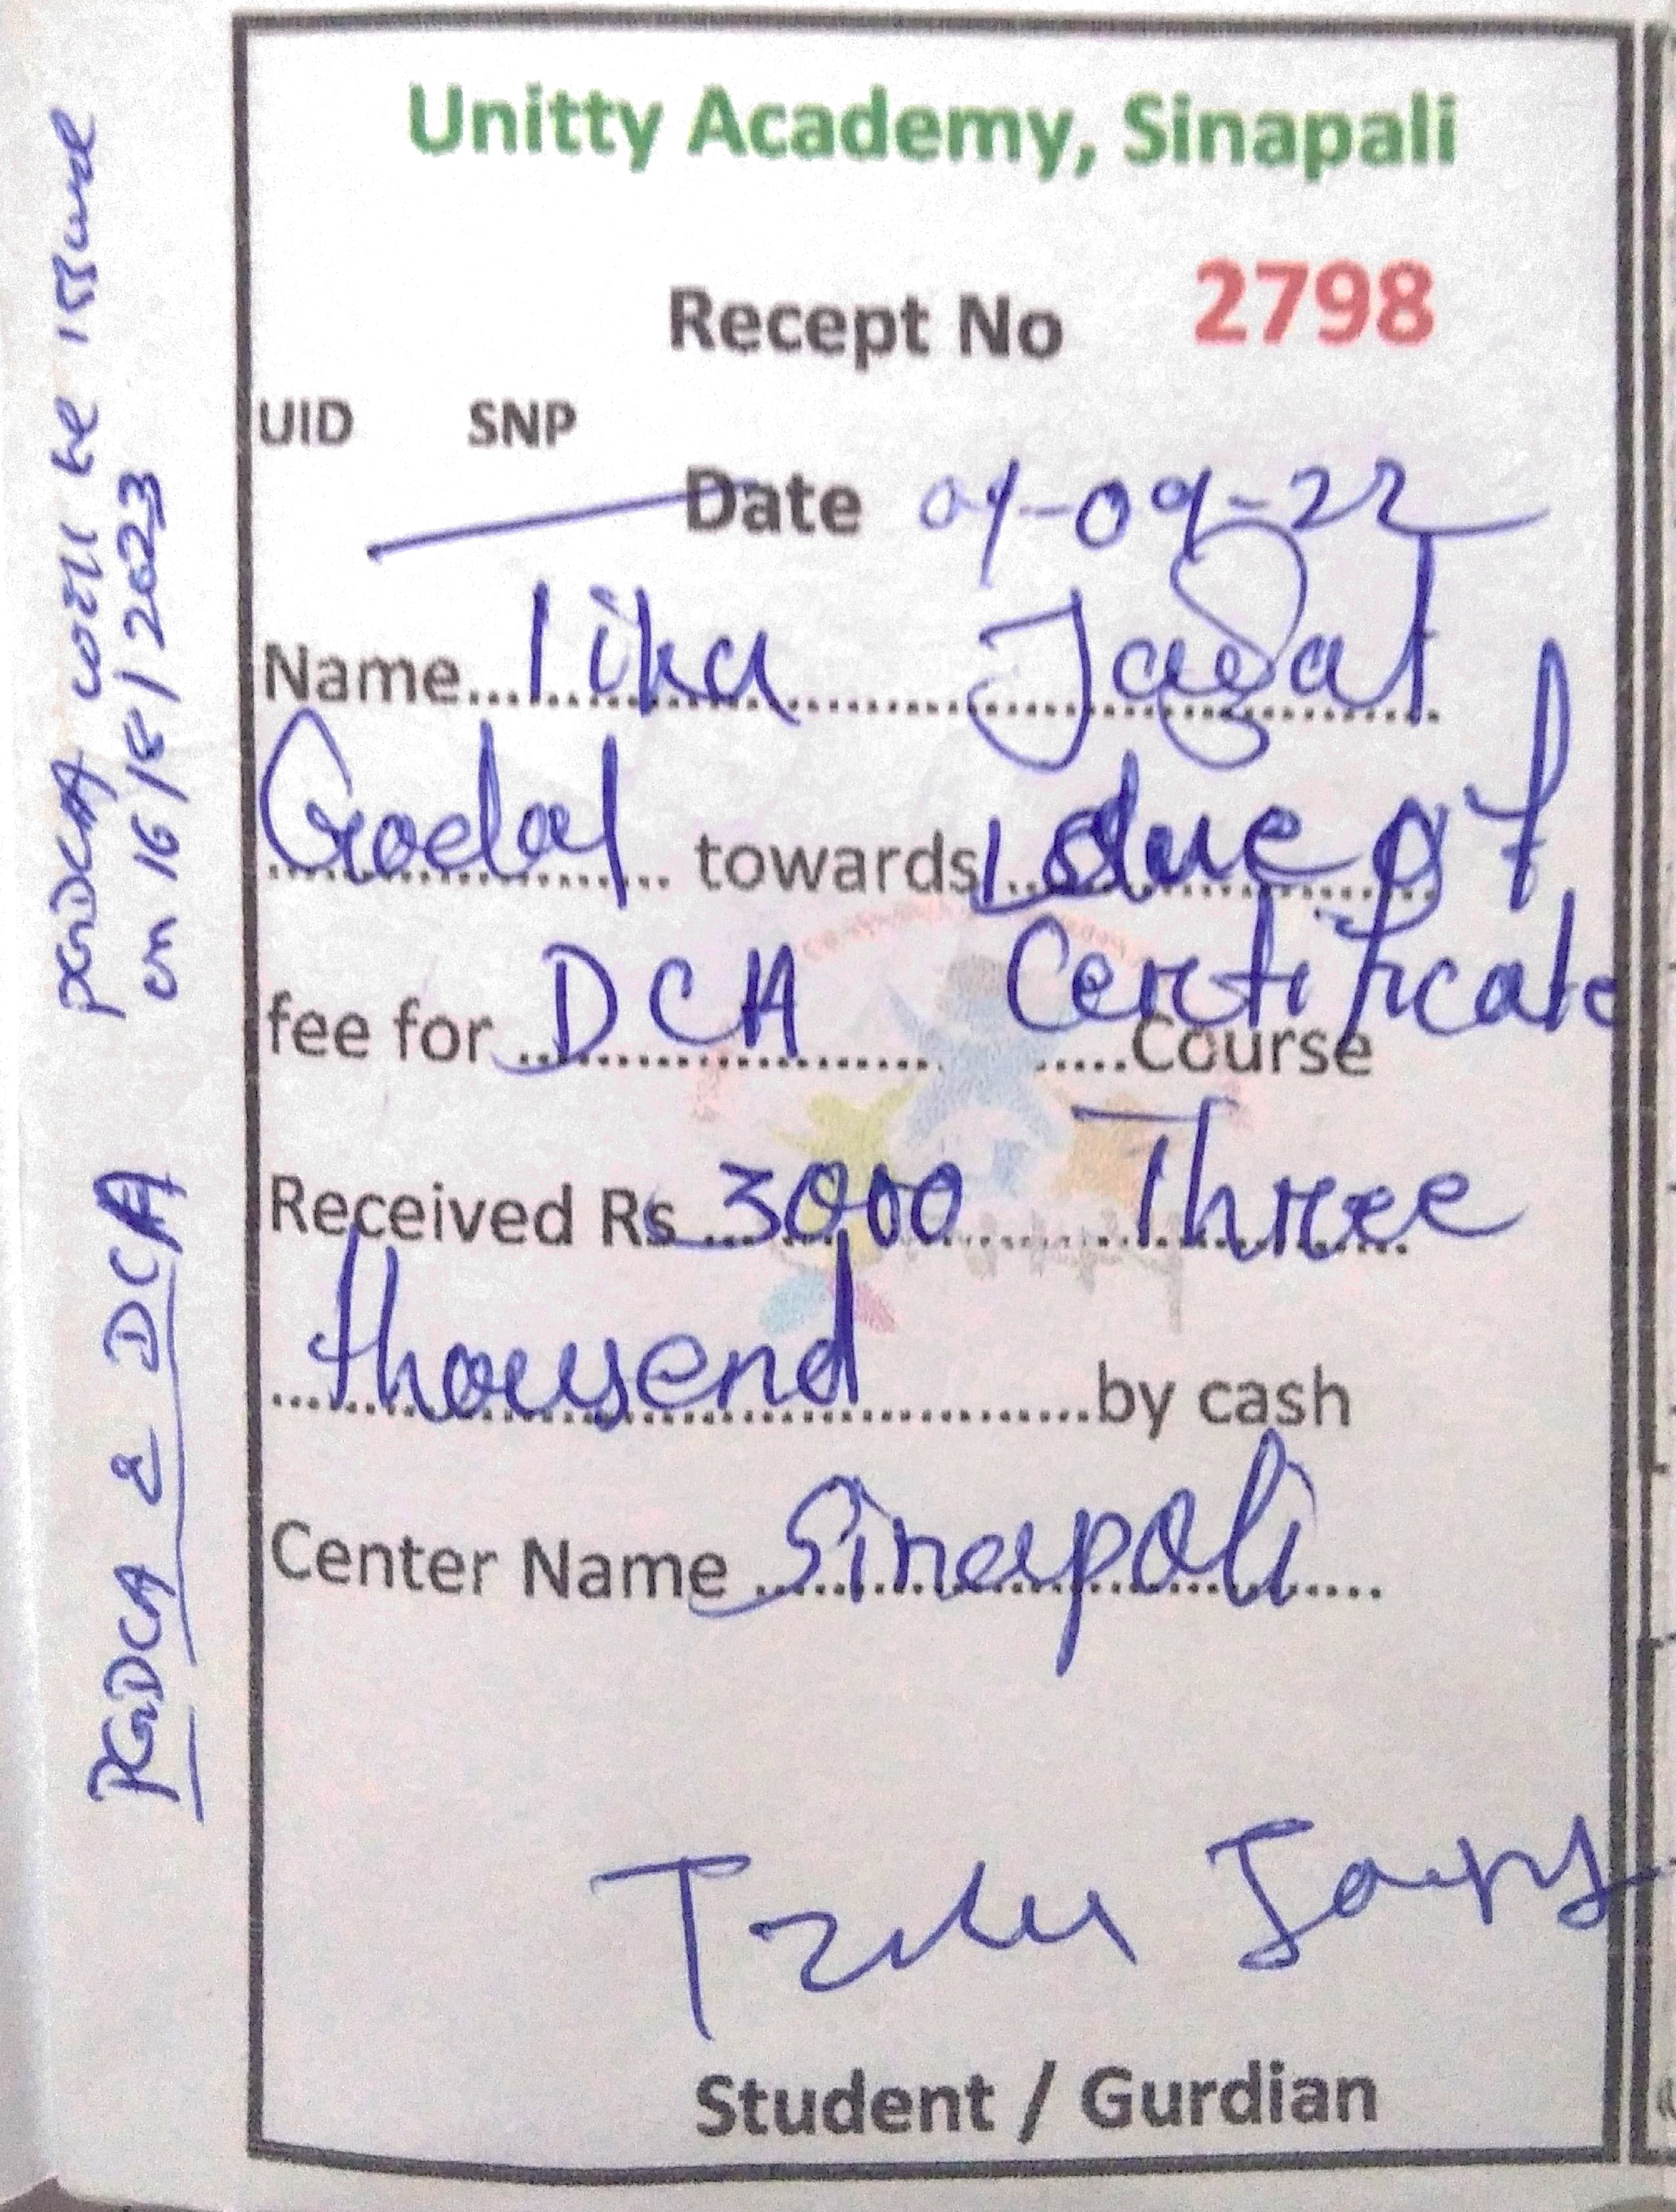 Unitty Academy, Sinapali
Recept No 2798
UID SNP
Date 01-09-22
Name... Tika Jagat
Godal towards due of
fee for DCA Certificate Course
Received Rs 3000 Three
thousend by cash
Center Name Sinapali
Tika
Student / Gurdian
PGDCA will be issue
on 16/8/2023
PGDCA & DCA